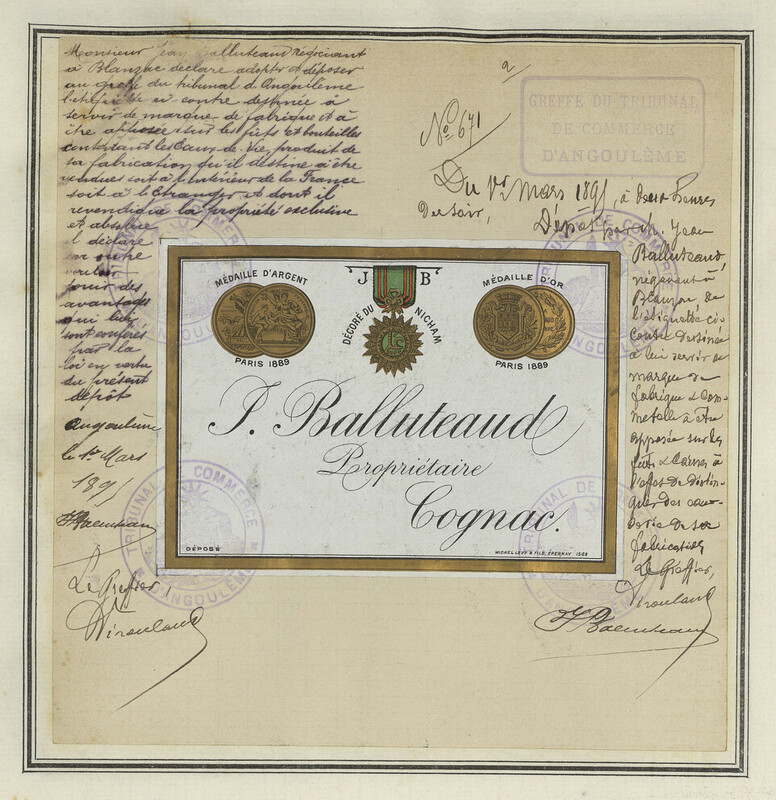 Monsieur Jean Balluteaud négociant
à Blanzac déclare adopter et déposer
au greffe du tribunal d'Angoulême
l'étiquette ci contre destinée à
servir de marque de fabrique et à
être apposée sur les fûts et bouteilles
contenant les Eaux-de-Vie, produit de
sa fabrication qu'il destine à être
vendues soit à l'intérieur de la France
soit à l'Etranger et dont il
revendique la propriété exclusive
et absolue
il déclare
en outre
vouloir
jouir des
avantages
qui lui
sont conférés
par la
loi en vertu
du présent
dépôt
Angoulême
le 1er Mars
1895
Le Greffier
2
No. 671
GREFFE DU TRIBUNAL
DE COMMERCE
D'ANGOULÊME
Du 1er Mars 1895, à deux heures
du soir,
Dépôt par M. Jean
Balluteaud,
négociant à
Blanzac de
l'étiquette ci-
contre destinée
à lui servir de
marque de
fabrique & com-
merce à être
apposée sur les
fûts & caisses à
l'effet de distin-
guer des eaux-
de-vie de sa
fabrication
Le Greffier,
MÉDAILLE D'ARGENT
PARIS 1889
J B
DÉCORÉ DU NICHAM
MÉDAILLE D'OR
PARIS 1889
J. Balluteaud
Propriétaire
Cognac.
DÉPOSÉ
MICHEL LEVY & FILS, EPERNAY
TRIBUNAL DE COMMERCE
D'ANGOULÊME
TRIBUNAL DE COMMERCE
D'ANGOULÊME